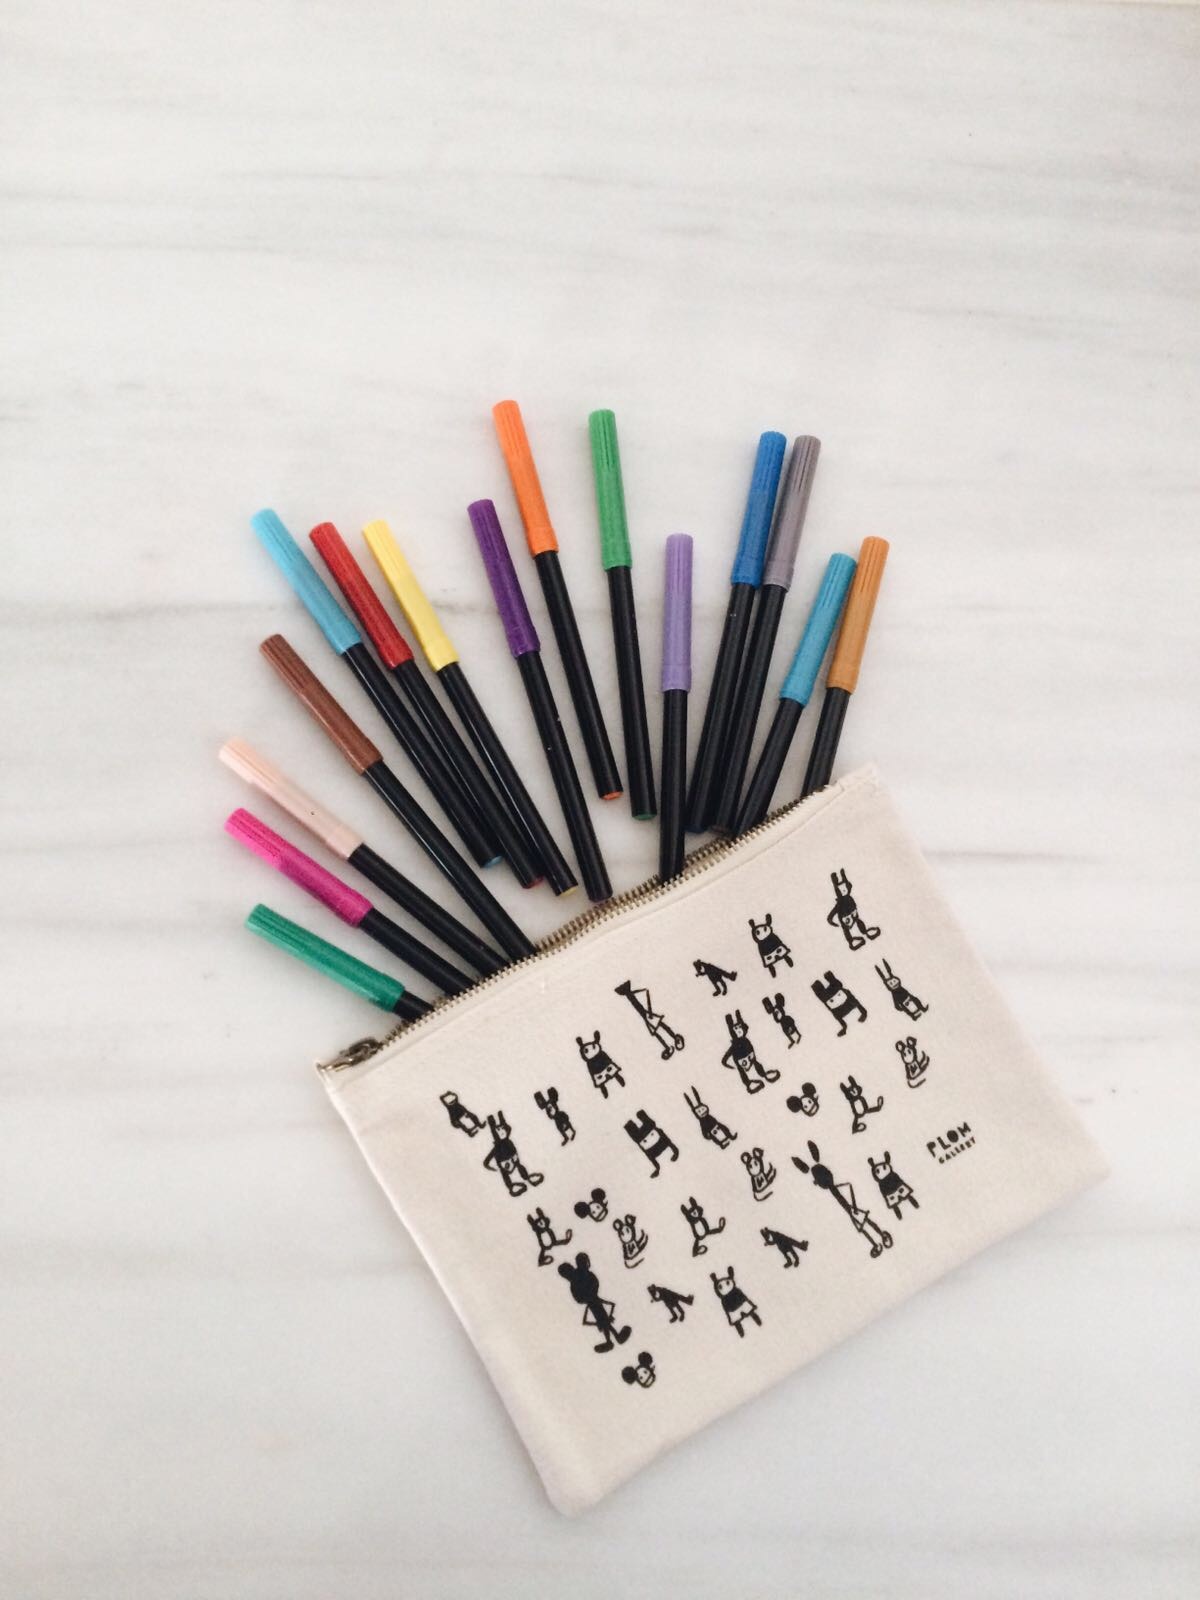 PLOM
GALLERY